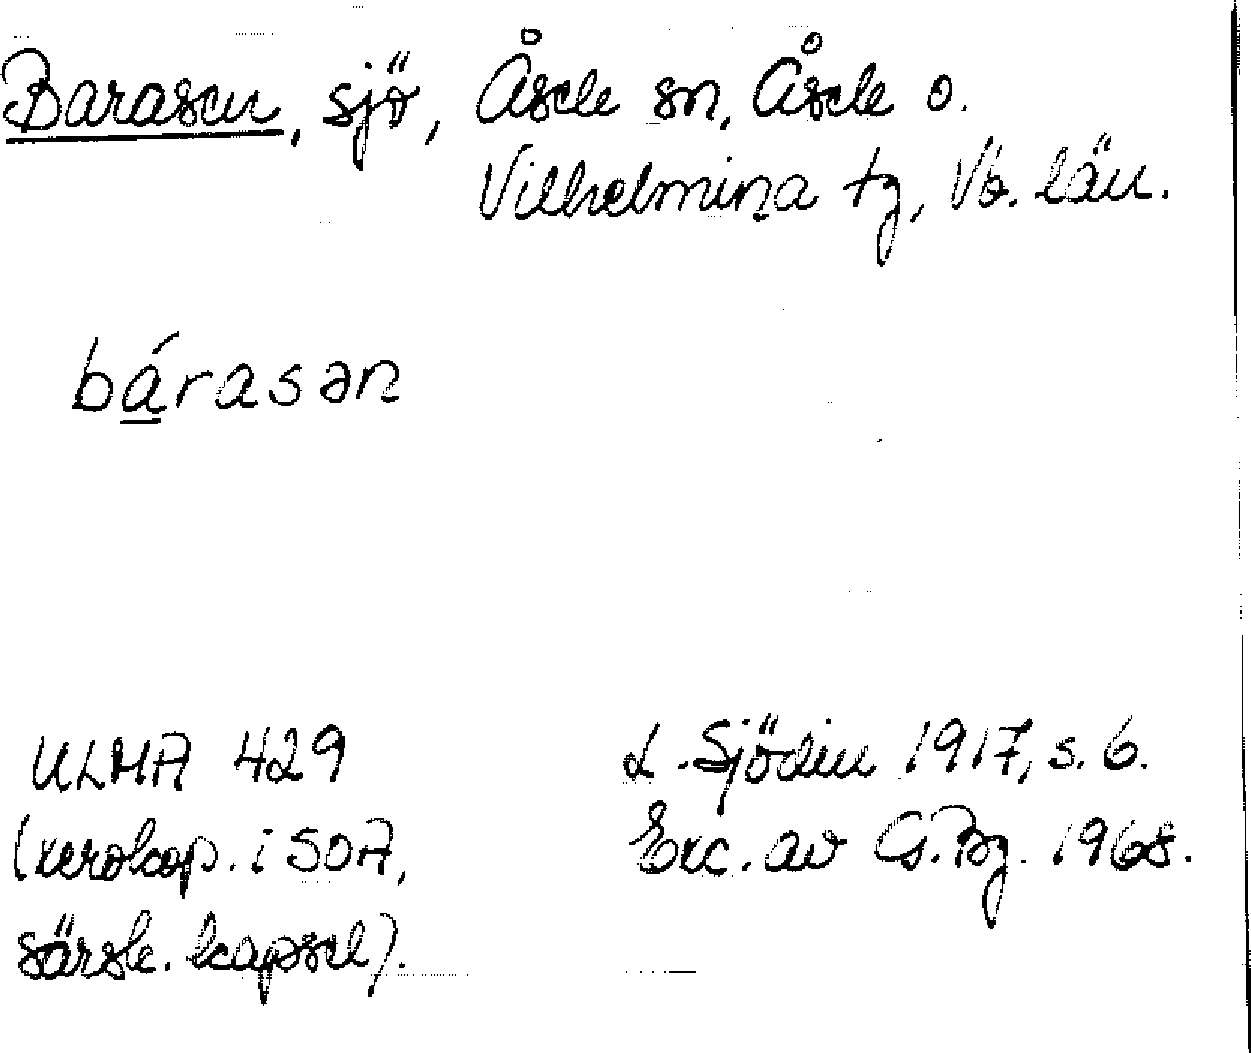 Barasen, sjö, Åsele sn, Åsele o.
Vilhelmina tg, Vb. län.
bárasən
ULMA 429
(xerokop. i SOA,
särsk. kapsel).
L. Sjödin 1917, s. 6.
Exc. av G. Bg. 1968.